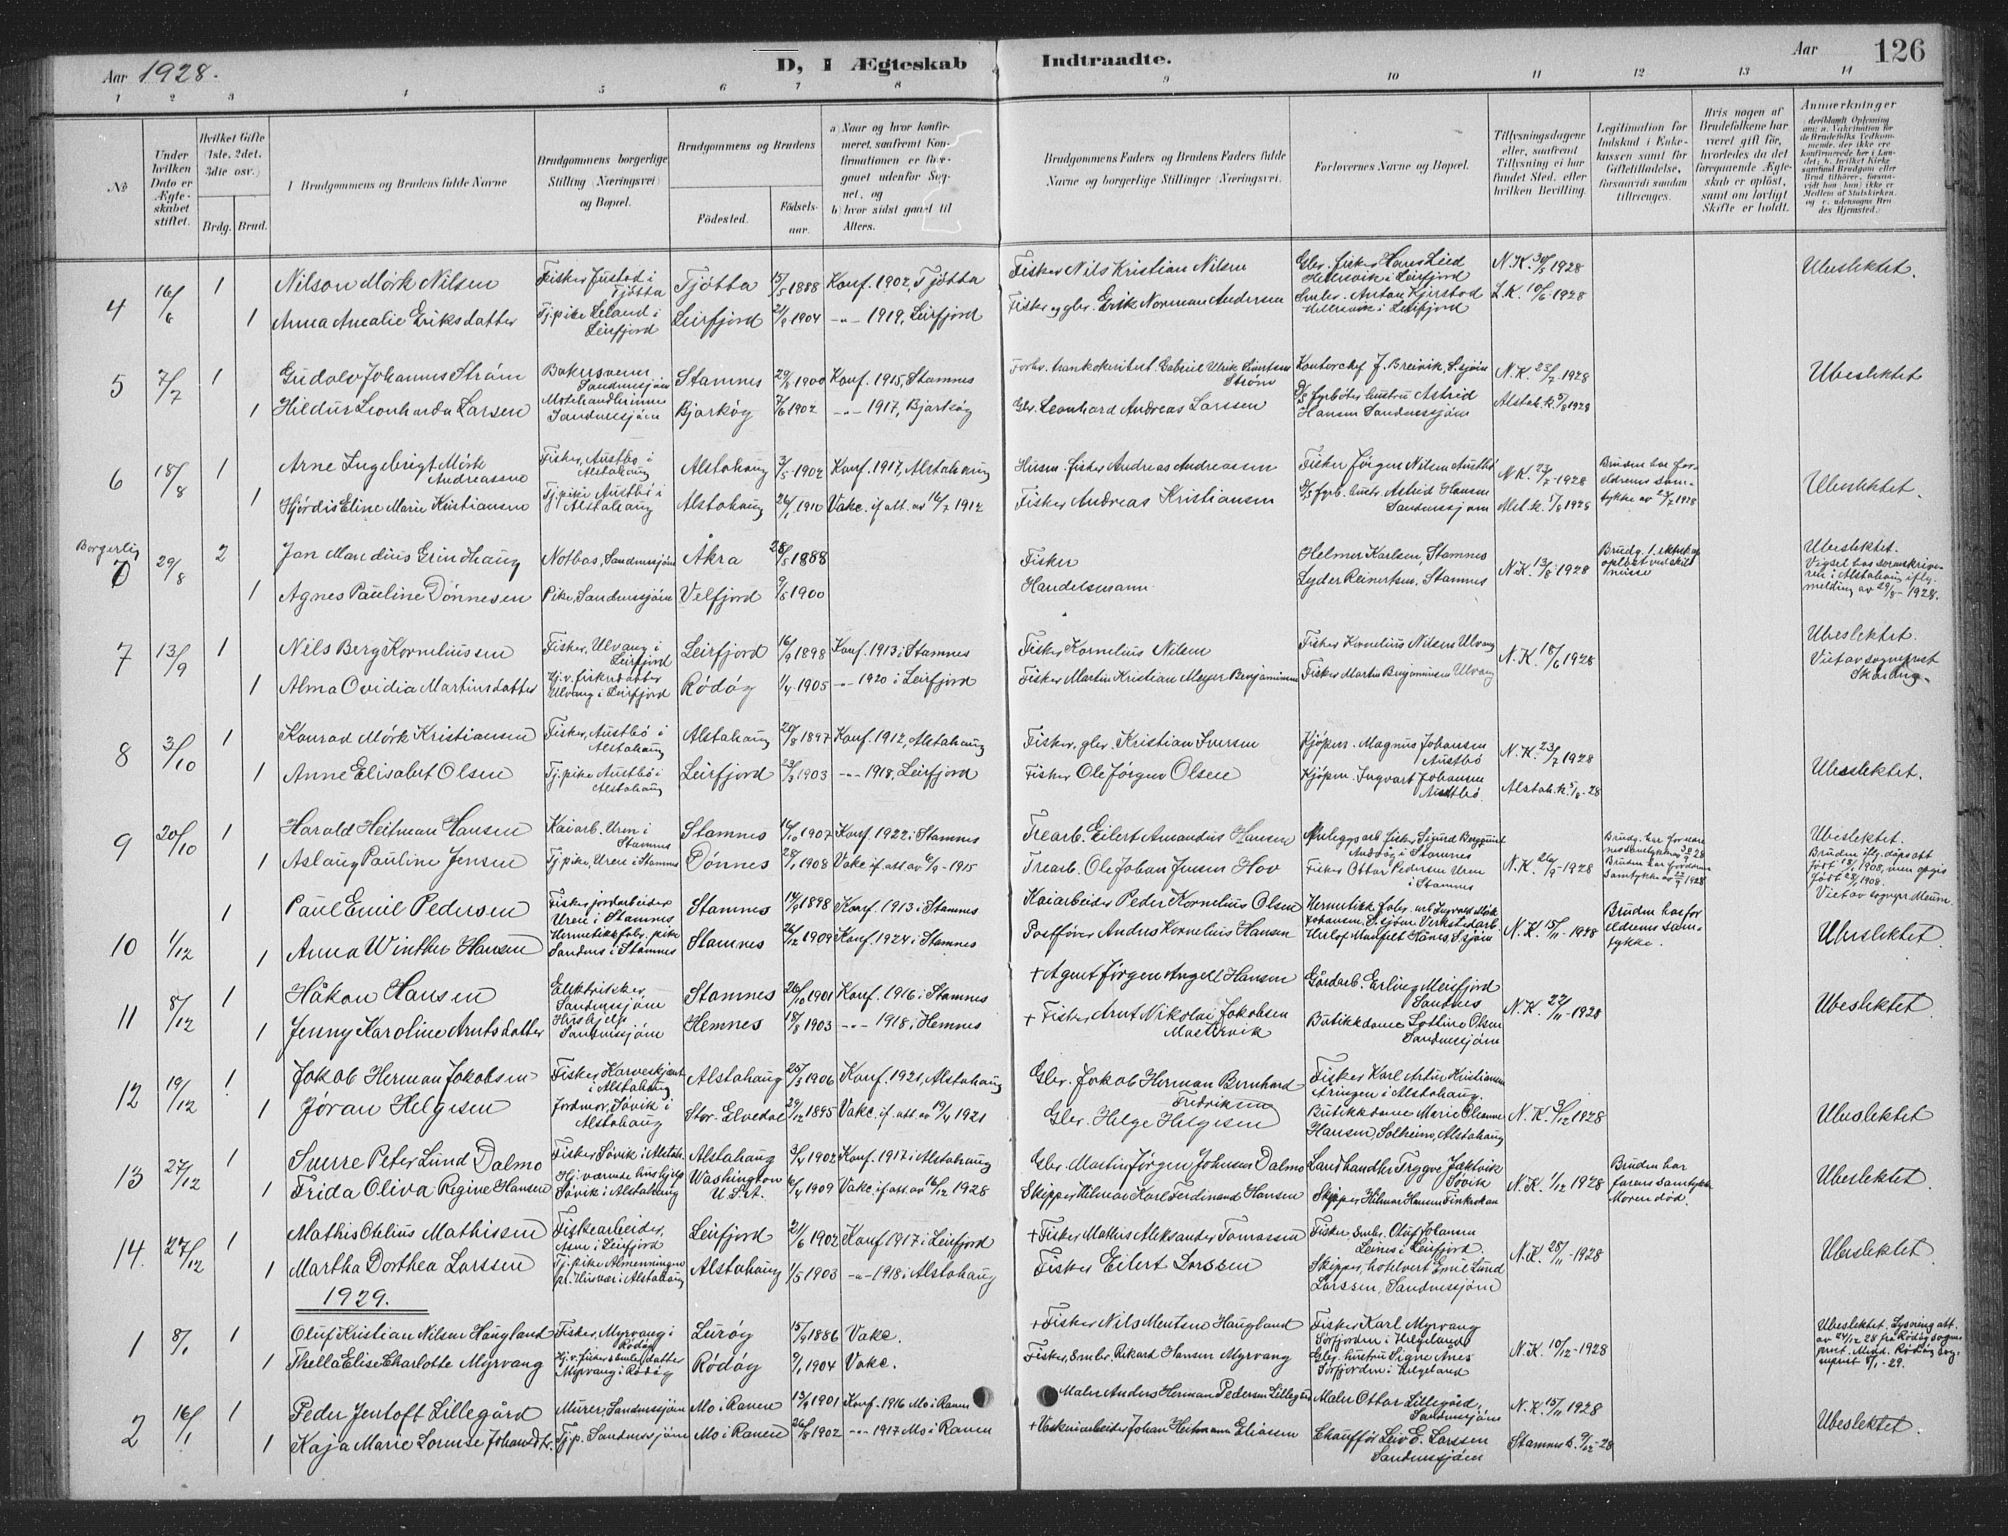 Aar 1928.
D, I Ægteskab Indtraadte.
Aar 126
1 2 3 4 5 6 7 8 9 10 11 12 13 14
No
Under hvilken Dato er Ægteskabet stiftet.
Hvilket Gifte (1ste, 2det, 3die osv.)
Brdg. Brud.
Brudgommens og Brudens fulde Navne
Brudgommens borgerlige Stilling (Næringsvei) og Bopæl.
Brudgommens og Brudens
Fødested.
Fødsels-aar.
a) Naar og hvor konfirmeret, saafremt Konfirmationen er foregaaet udenfor Sognet, og
b) hvor sidst gaaet til Alters.
Brudgommens Faders og Brudens Faders fulde Navne og borgerlige Stillinger (Næringsvei.
Forlovernes Navne og Bopæl.
Tillysningsdagene eller, saafremt Tillysning ei har fundet Sted, efter hvilken Bevilling.
Legitimation for Indskud i Enkekassen samt for Giftetilladelse, forsaavidt saadan tiltrænges.
Hvis nogen af Brudefolkene har været gift før, hvorledes da det foregaaende Ægteskab er opløst, samt om lovligt Skifte er holdt.
Anmerkninger
4 16/6 1 Nilson Mørk Nilsen Fisker Justad i Tjøtta Tjøtta 15/5 1888 Konf. 1902, Tjøtta Fisker Nils Kristian Nilsen N.K. 30/5 1928 Ubeslektet.
1 Anna Amalie Eriksdatter Tj.pike Leland i Leirfjord Leirfjord 21/9 1904 -"- 1919, Leirfjord Fisker og gbr. Erik Norman Andersen L.K. 10/6 1928
5 7/7 1 Gudolv Johannes Strøm Bakersvenn Sandnessjøen Stamnes 29/8 1900 Konf. 1915, Stamnes Kontorchef J. Breivik, S.sjøen N.K. 23/7 1928 Ubeslektet
1 Hildur Leonharda Larsen Motehandlerinne Sandnessjøen Bjarkøy 7/6 1902 -"- 1917, Bjarkøy Gbr. Leonhard Andreas Larssen Astrid Hansen Sandnessjøen Alstah.k. 5/8 1928
6 18/8 1 Arne Ingebrigt Mørk Andreassen Fisker, Austbø i Alstahaug Alstahaug 3/5 1902 Konf. 1917, Alstahaug fisker Andreas Andreassen Fisker Jørgen Nilsen Austbø N.K. 23/7 1928 Bruden har foreldrenes samtykke av 23/7 1928 Ubeslektet.
1 Hjørdis Eline Marie Kristiansen Tj.pike Austbø i Alstahaug Alstahaug 26/1 1910 Vakc. if. att. av 16/7 1912 Fisker Andreas Kristiansen Astrid Hansen Sandnessjøen Alst.k. 1/8 1928
Borgerlig 7 29/8 2 Jan Mandius Grindhaug Notbas, Sandnessjøen Åkra 28/5 1888 Fisker Helmer Karlsen, Stamnes N.K. 13/8 1928 Brudg. 1. ekteskap opløst ved skilsmisse Ubeslektet. Vigsel hos sorenskriveren i Alstahaug iflg. melding av 29/8-1928.
1 Agnes Pauline Dønnesen Pike, Sandnessjøen Velfjord 9/5 1900 Handelsmann Lyder Reinertsen, Stamnes
7 13/9 1 Nils Berg Korneliussen Fisker, Ulvang i Leirfjord Leirfjord 16/9 1898 Konf. 1913 i Stamnes Fisker Kornelius Nilsen Fisker Kornelius Nilsen Ulvang N.K. 18/6 1928 Ubeslektet. Viet av sogneprest
1 Alma Ovidia Martinsdatter Hj.v. fiskerdatter Ulvang i Leirfjord Rødøy 1/4 1905 -"- 1920 i Leirfjord Fisker Martin Kristian Meyer Benjaminsen Fisker Martin Benjaminsen Ulvang
8 3/10 1 Konrad Mørk Kristiansen Fisker, Austbø i Alstahaug Alstahaug 20/8 1897 Konf. 1912, Alstahaug Fisker, gbr. Kristian Iversen Kjøpm. Magnus Johansen Austbø N.K. 23/7 1928 Ubeslektet.
1 Anne Elisabet Olsen Tj.pike Austbø i Alstahaug Leirfjord 23/3 1903 -"- 1918, Leirfjord Fisker Ole Jørgen Olsen Kjøpm. Ingvart Johansen Austbø Alstah.k. 5/8-28
9 20/10 1 Harald Heitman Hansen Kaiarb. Uren i Stamnes Stamnes 16/10 1907 Konf. 1922 i Stamnes Trearb. Eilert Amandus Hansen Sigurd Bergquist i Stamnes N.K. 26/9-1928 Ubeslektet.
1 Aslaug Pauline Jensen Tj.pike, Uren i Stamnes Dønnes 28/1 1908 Vakc. if. att. av 6/9-1915 Trearb. Ole Johan Jensen Hov Fisker Ottar Pedersen Uren i Stamnes
10 1/12 1 Paul Emil Pedersen Fiskerjordarbeider Uren i Stamnes Stamnes 14/9 1898 Konf. 1913 i Stamnes Kaiarbeider Peder Kornelius Olsen N.K. 15/11-1928 Bruden har foreldrenes samtykke. Ubeslektet
1 Anna Winther Hansen Hermetikkfabr. pike Sandnes i Stamnes Stamnes 26/12 1909 Konf. 1924 i Stamnes Postfører Andres Kornelius Hansen
11 8/12 1 Håkon Hansen Elektriker, Sandnessjøen Stamnes 26/10 1901 Konf. 1916 i Stamnes + Agent Jørgen Angell Hansen Gårdarb. Erling Meisfjord Sandnes N.K. 22/11-1928 Ubeslektet
1 Jenny Karoline Arntsdatter Sandnessjøen Hemnes 18/8 1903 -"- 1918 i Hemnes + Fisker Arnt Nikolai Jakobsen Butikkdame Lottine Olsen Sandnessjøen
12 19/12 1 Jakob Herman Jakobsen Fisker i Alstahaug Alstahaug 25/3 1906 Konf. 1921, Alstahaug Gbr. Jakob Herman Bernhard Fredriksen Fisker Karl Artur Kristiansen i Alstahaug. N.K. 3/12 1928 Ubeslektet
1 Jøran Helgesen Jordmor, Søvik i Alstahaug Stor-Elvedal 29/12 1895 Vakc. if. att. av 19/4 1921 Gbr. Helge Helgesen Butikkdame Marie Oleanne Hansen, Solheim, Alstahaug
13 27/12 1 Sverre Peter Lund Dalmo Fisker Søvik i Alstah. Alstahaug 3/4 1902 Konf. 1917 i Alstahaug Gbr. Martin Jørgen Johansen Dalmo Landhandler Trygve Jektvik Søvik N.K. 1/12 1928 Bruden har farens samtykke. Moren død. Ubeslektet
1 Frida Oliva Regine Hansen Hj.værende hushjelp Søvik i Alstahaug Washington U.S.A. 6/4 1909 Vakc. if. att. av 16/12 1928 Skipper Hilmar Karl Ferdinand Hansen Skipper Hilmar Hansen
14. 27/12 1 Mathis Otelius Mathissen Fiskearbeider, i Leirfjord Leirfjord 21/6 1902 Konf. 1917 i Leirfjord + Fisker Mathis Aleksander Tomassen Fisker Olaf Johansen Leines i Leirfjord. N.K. 28/11-1928 Ubeslektet
1 Martha Dorthea Larssen Tj.pike Almenningen i Alstahaug Alstahaug 1/5 1903 -"- 1918 i Alstahaug Fisker Eilert Larssen Skipper, Emil Lund Larssen, Sandnessjøen
1929.
1 8/1 1 Oluf Kristian Nilsen Haugland Fisker, Myrvang i Rødøy Lurøy 15/9 1886 Vakc. + Fisker Nils Mentsen Haugland Fisker Karl Myrvang Sørfjorden i Helgeland N.K. 10/12-1928 Ubeslektet. Lysning att. av 24/12 28 fra Rødøy sogneprest.
1 Thella Elise Charlotte Myrvang Myrvang i Rødøy Rødøy 9/1 1904 Vakc. Fisker, Rikard Hansen Myrvang Gbr. hustru Signe Anes Sørfjorden i Helgeland
2 16/1 1 Peder Jentoft Lillegård Murer, Sandnessjøen Mo i Ranen 13/9 1901 Konf. 1916 Mo i Ranen Maler Anders Herman Pedersen Lillegård Maler Ottar Lillegård, Sandnessjøen N.K. 15/11 1928 Ubeslektet
1 Kaja Marie Lornse Johansdtr. Tj.p. Sandnessjøen Mo i Ranen 26/8 1902 -"- 1917 Mo i Ranen Johan Heitmann Eliassen Chauffør Leiv E. Larssen Sandnessjøen Stamnes k. 9/12-28